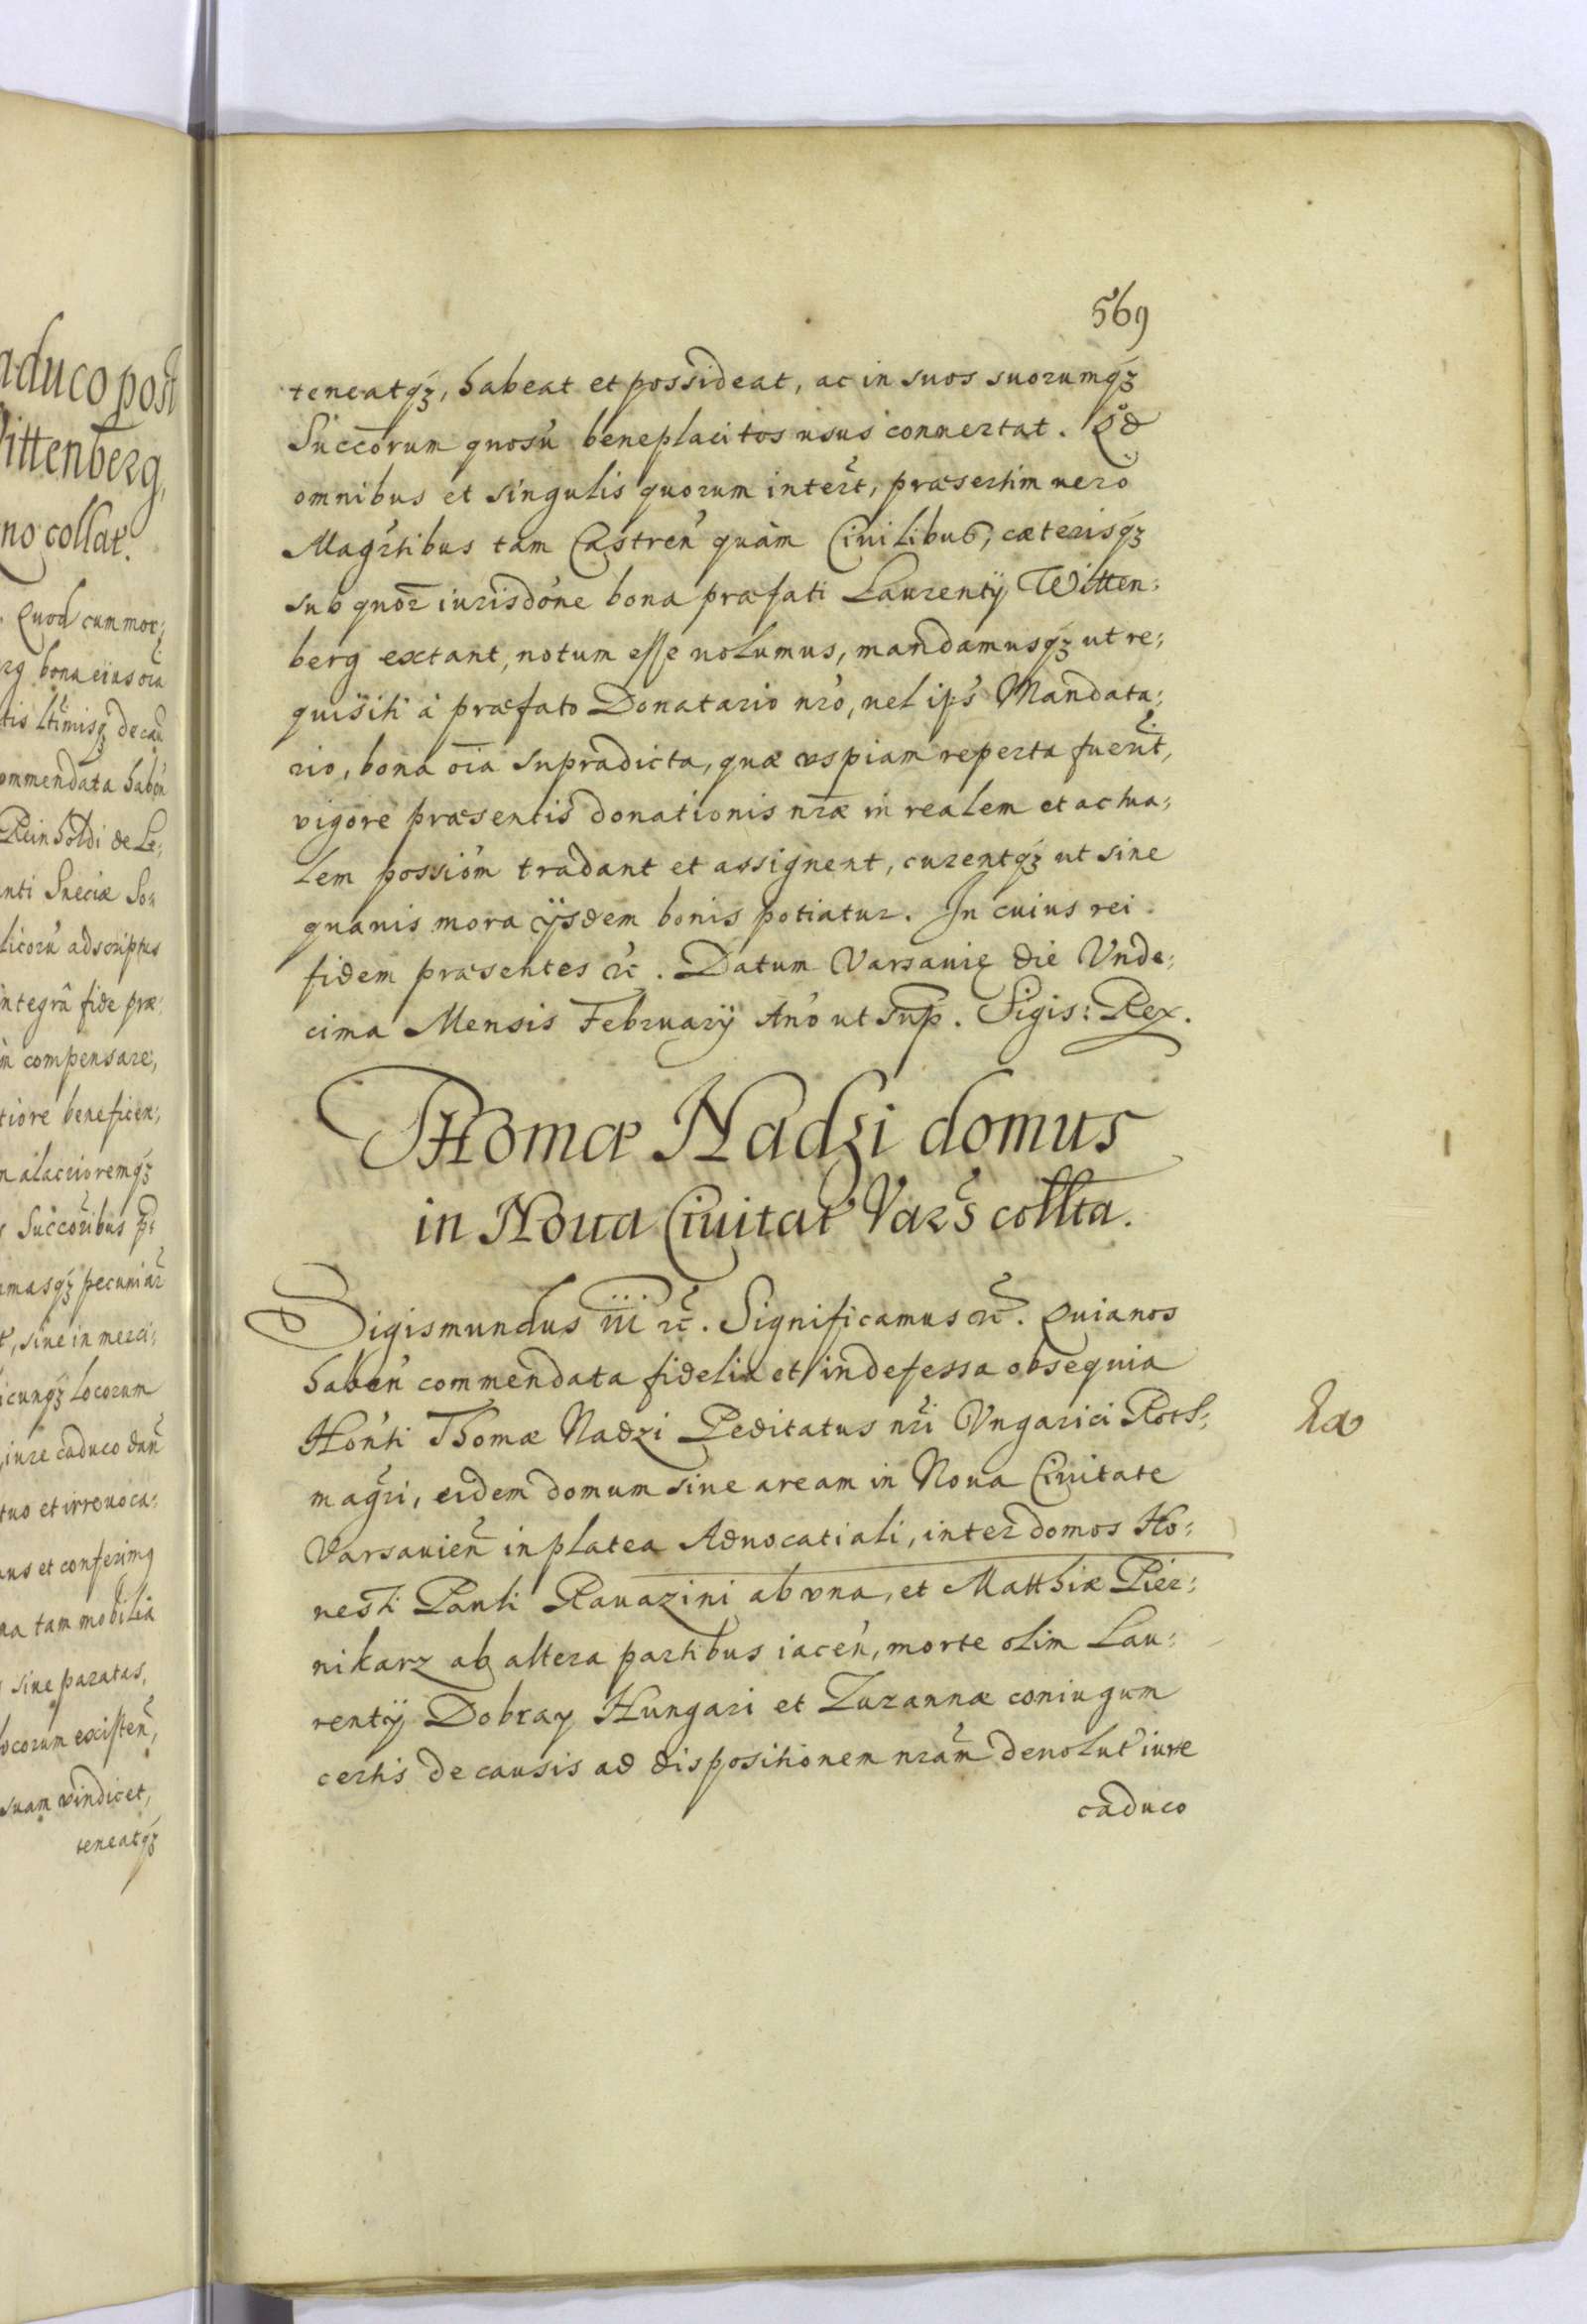 aduco post
ittenberg,
no collat.
Quod cum mor;
rg bona eius oia
tis ltimisq; de cau
ommendata haben
Reinholdi de Le;
nti Sueciæ So;
licoru adscriptus
integrâ fide præ
compensare,
tiore beneficen;
alacrioremq;
Succoribus
masq; pecuniar
siue in merci;
icunq; locorum
iure caduco dan
tuo et irreuoca;
us et conferimq
a tam mobilia
siue paratas,
ocorum existen,
suam vindicet,
teneatq;
569
teneatq;, habeat et possideat, ac in suos suorumq;
Succorum quosu beneplacitos usus conuertat. Qd
omnibus et singulis quorum intert, præsertim uero
Magrtibus tam Castren quàm Ciuilibus, cæterisq;
sub quor iurisdone bona præfati Laurentij Witten;
berg extant, notum esse uolumus, mandamusq; ut re;
quisiti à præfato Donatario nro, uel ips Mandata;
rio, bona oia supradicta, quæ vspiam reperta fuerut,
vigore præsentis donationis nræ in realem et actua;
lem possiom tradant et assignent, curentq; ut sine
quauis mora ijsdem bonis potiatur. In cuius rei
fidem præsentes &c. Datum Varsauię die Vnde;
cima Mensis February Ano ut sup. Sigis: Rex.
Thomæ Nadzi domus
in Noua Ciuitat Vars collta.
Sigismundus iii &c. Significamus &c. Quia nos
haben commendata fidelia et indefessa obsequia
Honti Thomæ Nadzi Peditatus nri Vngarici Roth;
magri, eidem domum siue aream in Noua Ciuitate
Varsauien in platea Aduocatiali, inter domos Ho;
nesti Pauli Rauazini ab vna, et Matthiæ Pier;
nikarz ab altera partibus iacen, morte olim Lau;
rentij Dobray Hungari et Zuzannæ coniugum
certis de causis ad dispositionem nram deuolut iure
caduco